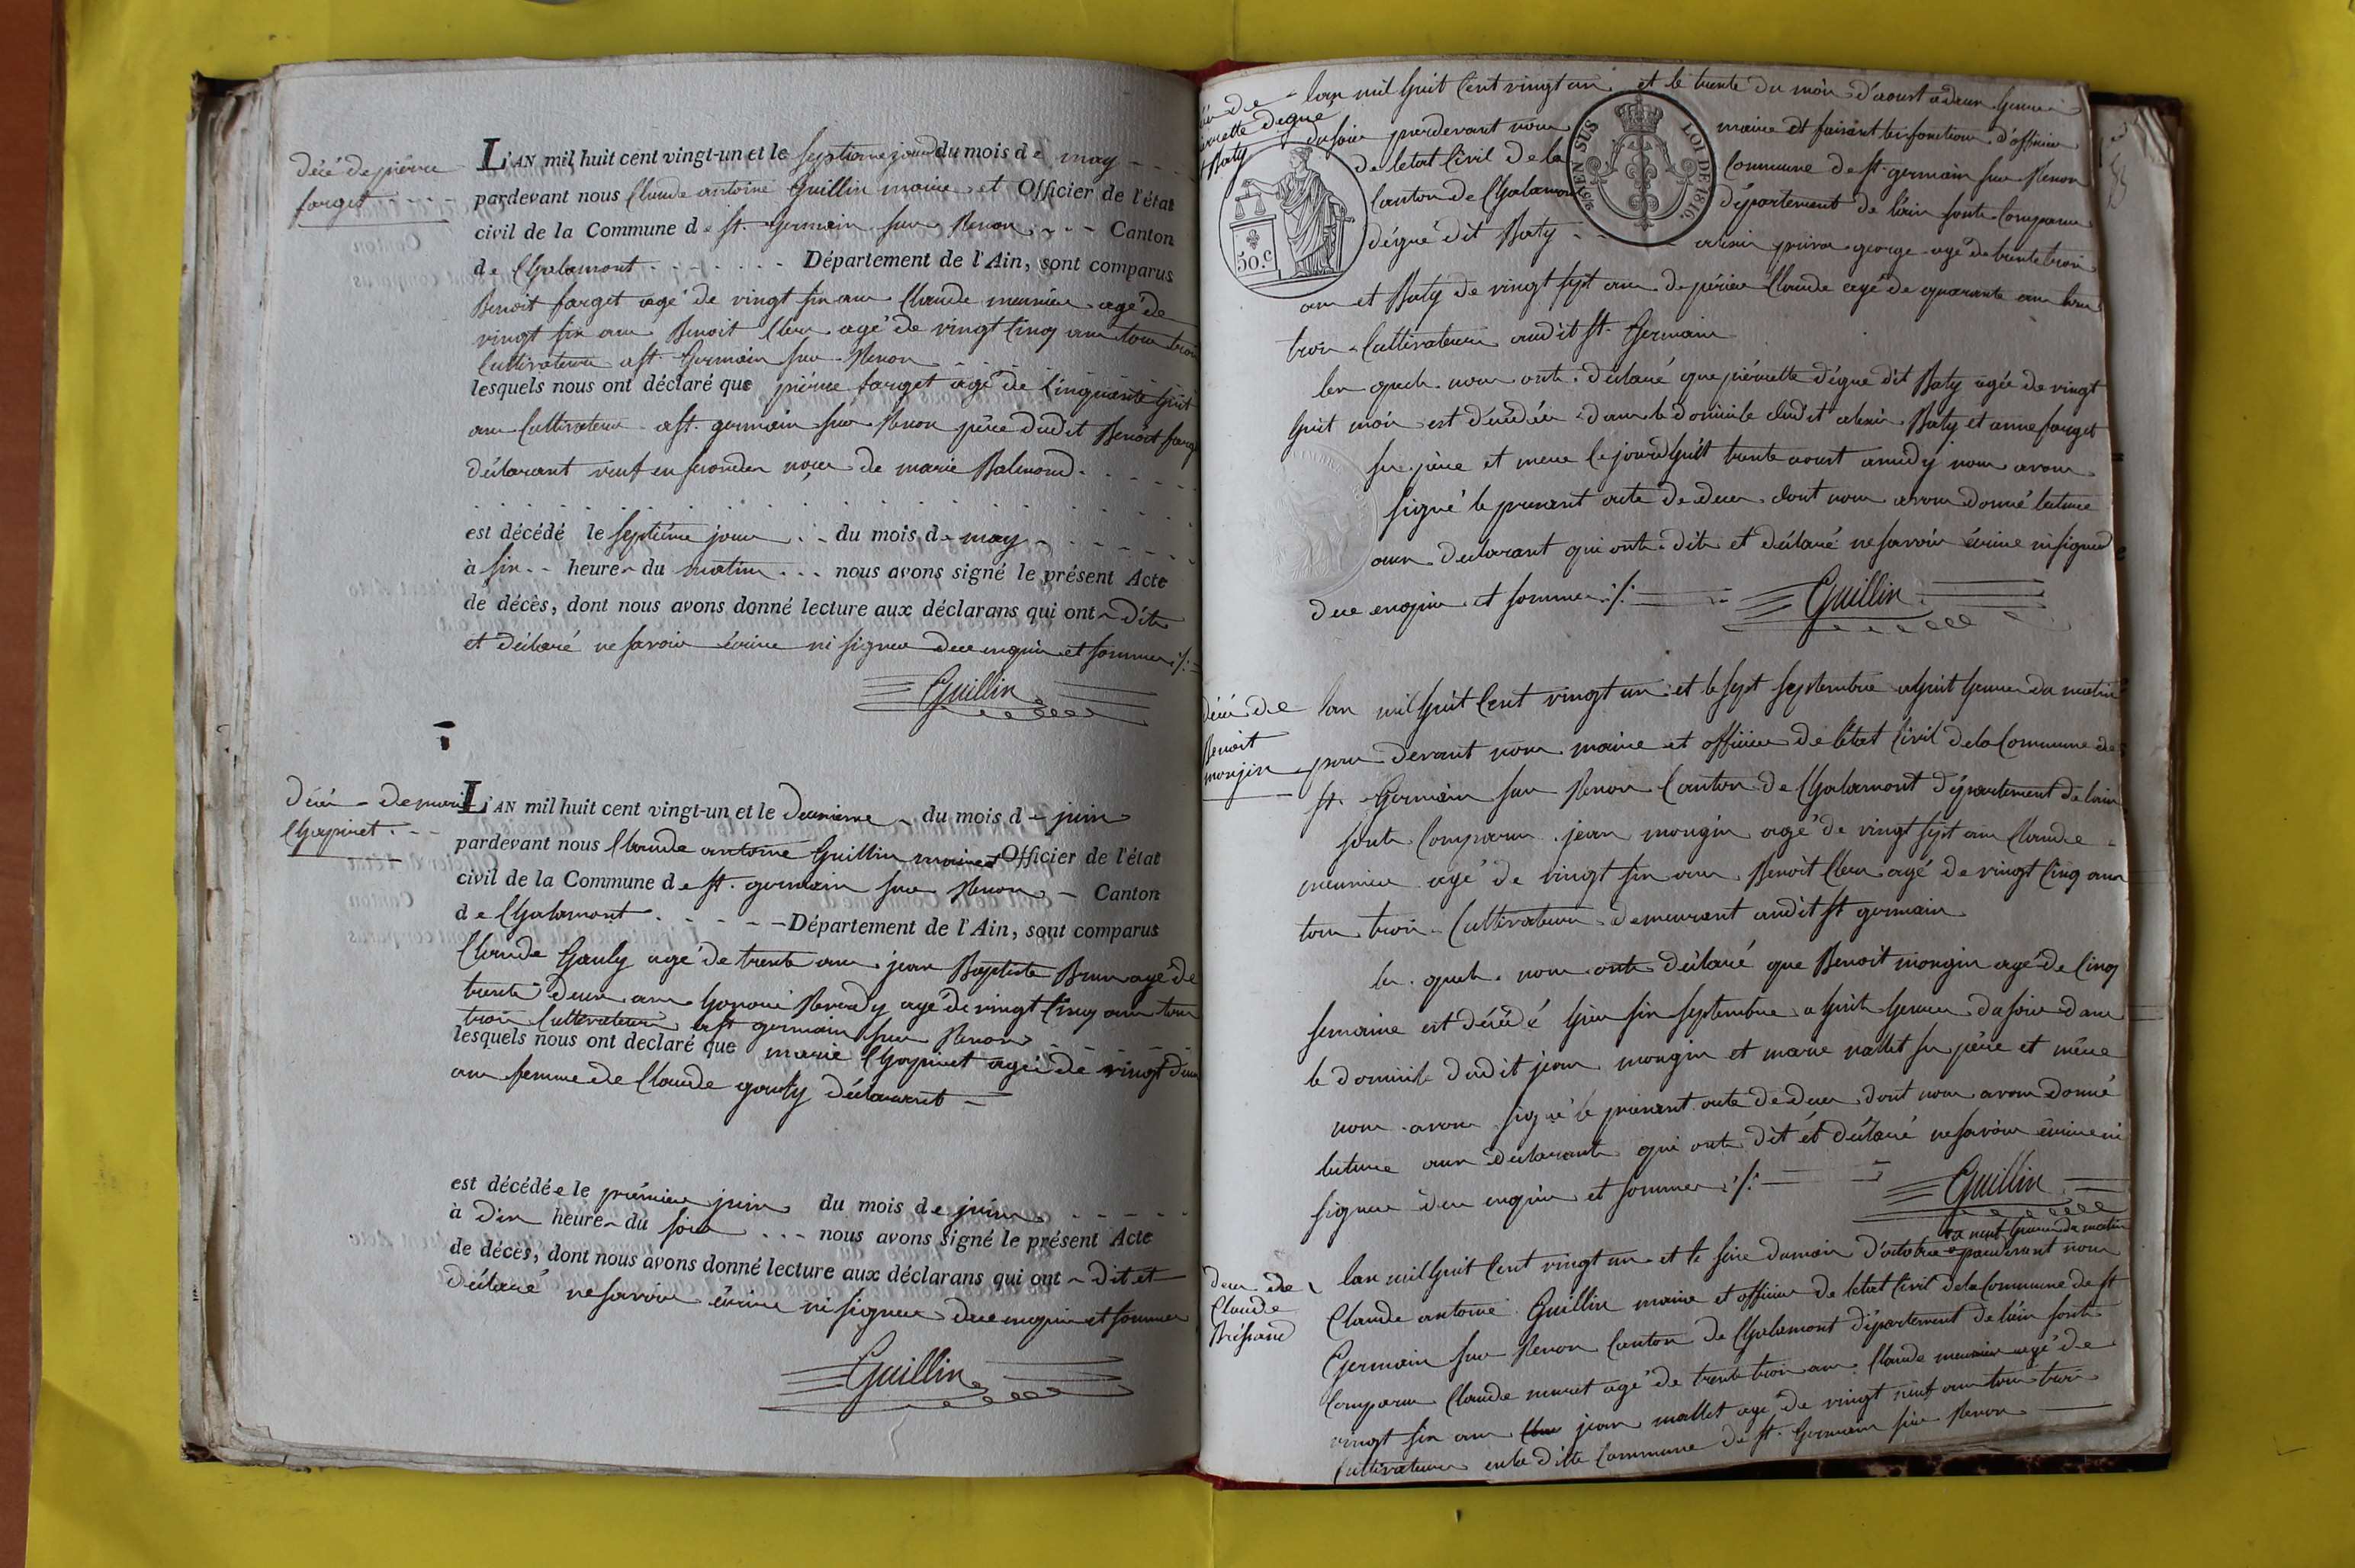 décé de piérre
farget
L'AN mil huit cent vingt-un et le septieme jour du mois de may
pardevant nous Claude antoine Guillin maire et Officier de l'état
civil de la Commune de st. Germain sur Renon Canton
de Chalamont Département de l'Ain, sont comparus
Benoit farget agé de vingt six ans Claude meunier agé de
vingt six ans Benoit Clerc agé de vingt cinq ans tous trois
Cultivateurs a st. Germain sur Renon
lesquels nous ont déclaré que piérre farget agé de Cinquante huit
ans Cultivateur a st. germain sur Renon pére dudit Benoit farget
déclarant veuf en secondes noces de marie Balmond
est décédé le septiéme jour du mois de may
à six heures du matin nous avons signé le présent Acte
de décès, dont nous avons donné lecture aux déclarans qui ont dit
et déclaré ne savoir écrire ni signer de ce enquis et sommés ./.
Guillin
décé de marie
Chapuret
L'AN mil huit cent vingt-un et le deuxieme du mois de juin
pardevant nous Claude antoine Guillin maire et Officier de l'état
civil de la Commune de st. germain sur Renon Canton
de Chalamont Département de l'Ain, sont comparus
Claude Gauly agé de trente ans jean Baptiste Brun agé de
trente deux ans honoré agé de vingt Cinq ans tous
trois Cultivateurs a st germain sur Renon
lesquels nous ont declaré que marie agée de vingt deux
ans femme de Claude gauly déclarant
est décédée le prémier juin du mois de juin
à dix heures du soir nous avons signé le présent Acte
de décès, dont nous avons donné lecture aux déclarans qui ont dit et
déclaré ne savoir écrire ni signer de ce enquis et sommés
Guillin
dégue
Baty
lan mil huit Cent vingt un et le trente du mois d'aoust a deux heures
du soir pardevant nous maire et faisant les fonctions d'officier
de letat Civil de la Commune de st. germain sur Renon
Canton de Chalamont département de lain sont Comparus
dégue dit Baty george agé de trente trois
ans et Baty de vingt sept ans Claude agé de quarante ans tous
trois Cultivateurs audit st. Germain
TIMBRE
50.C
EN SUS
LOI DE 1816.
les quels nous ont déclaré que piérrette dégue dit Baty agée de vingt
huit mois est décédée dans le domicile dudit Baty et anne farget
ses pére et mere le jourdhuit trente aoust a midy nous avons
signé le présent acte de deces dont nous avons donné lecture
aux declarant qui ont dit et déclaré ne savoir écrire ni signer
de ce enquis et sommés ./.
Guillin
décé de
Benoit
mongin
lan mil huit Cent vingt un et le sept septembre a huit heures du matin
par devant nous maire et officier de létat Civil de la Commune de
st. Germain sur Renon Canton de Chalamont département de lain
sont Comparus jean mongin agé de vingt sept ans Claude
meunier agé de vingt six ans Benoit Clerc agé de vingt Cinq ans
tous trois Cultivateurs demeurant audit st germain
les quels nous ont déclaré que Benoit mongin agé de Cinq
semaine est décédé hier six septembre a huit heures du soir dans
le domicile dudit jean mongin et marie nallet ses pére et mére
nous avons signé le présent acte de deces dont nous avons donné
lecture aux declarants qui ont dit et déclaré ne savoir écrire ni
signer de ce enquis et sommés ./.
Guillin
deces de
Claude
Bressand
a neuf heures du matin
lan mil huit Cent vingt un et le seize du mois d'octobre pardevant nous
Claude antoine Guillin maire et officier de letat Civil de la Commune de st
Germain sur Renon Canton de Chalamont département de lain sont
Comparus Claude muret agé de trente trois ans Claude meunier agé de
vingt six ans jean mallet agé de vingt neuf ans tous trois
Cultivateurs en la ditte Commune de st. Germain sur Renon